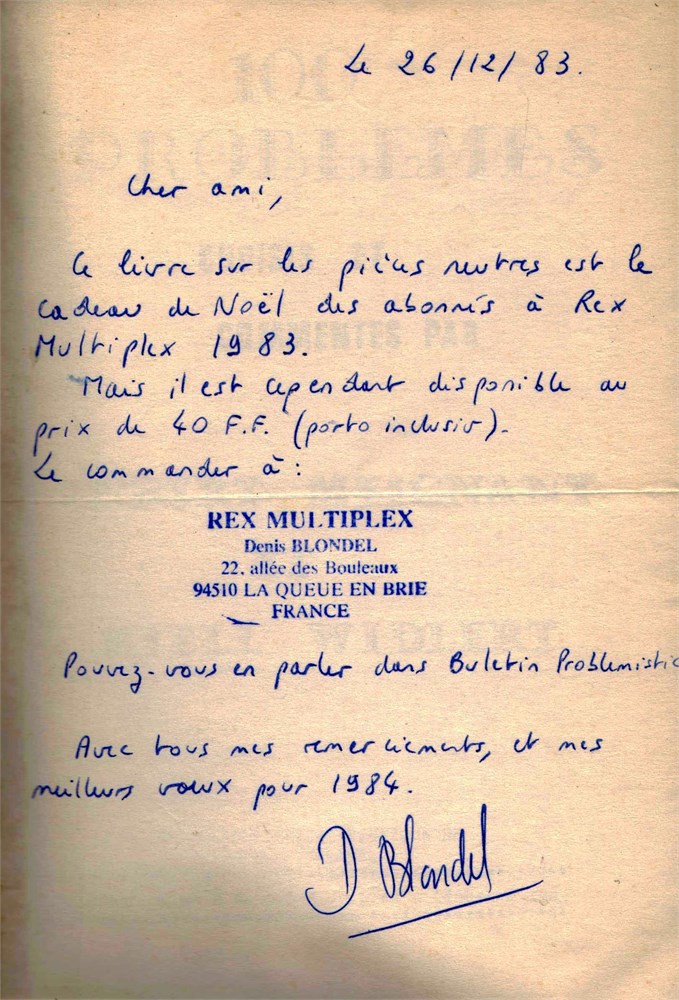 Le 26/12/83.
Cher ami,
Ce livre sur les pièces neutres est le
cadeau de Noël des abonnés à Rex
Multiplex 1983.
Mais il est cependant disponible au
prix de 40 F.F. (porto inclusiv).
Le commander à :
REX MULTIPLEX
Denis BLONDEL
22, allée des Bouleaux
94510 LA QUEUE EN BRIE
FRANCE
Pouvez-vous en parler dans Buletin Problemistic
Avec tous mes remerciements, et mes
meilleurs voeux pour 1984.
D Blondel